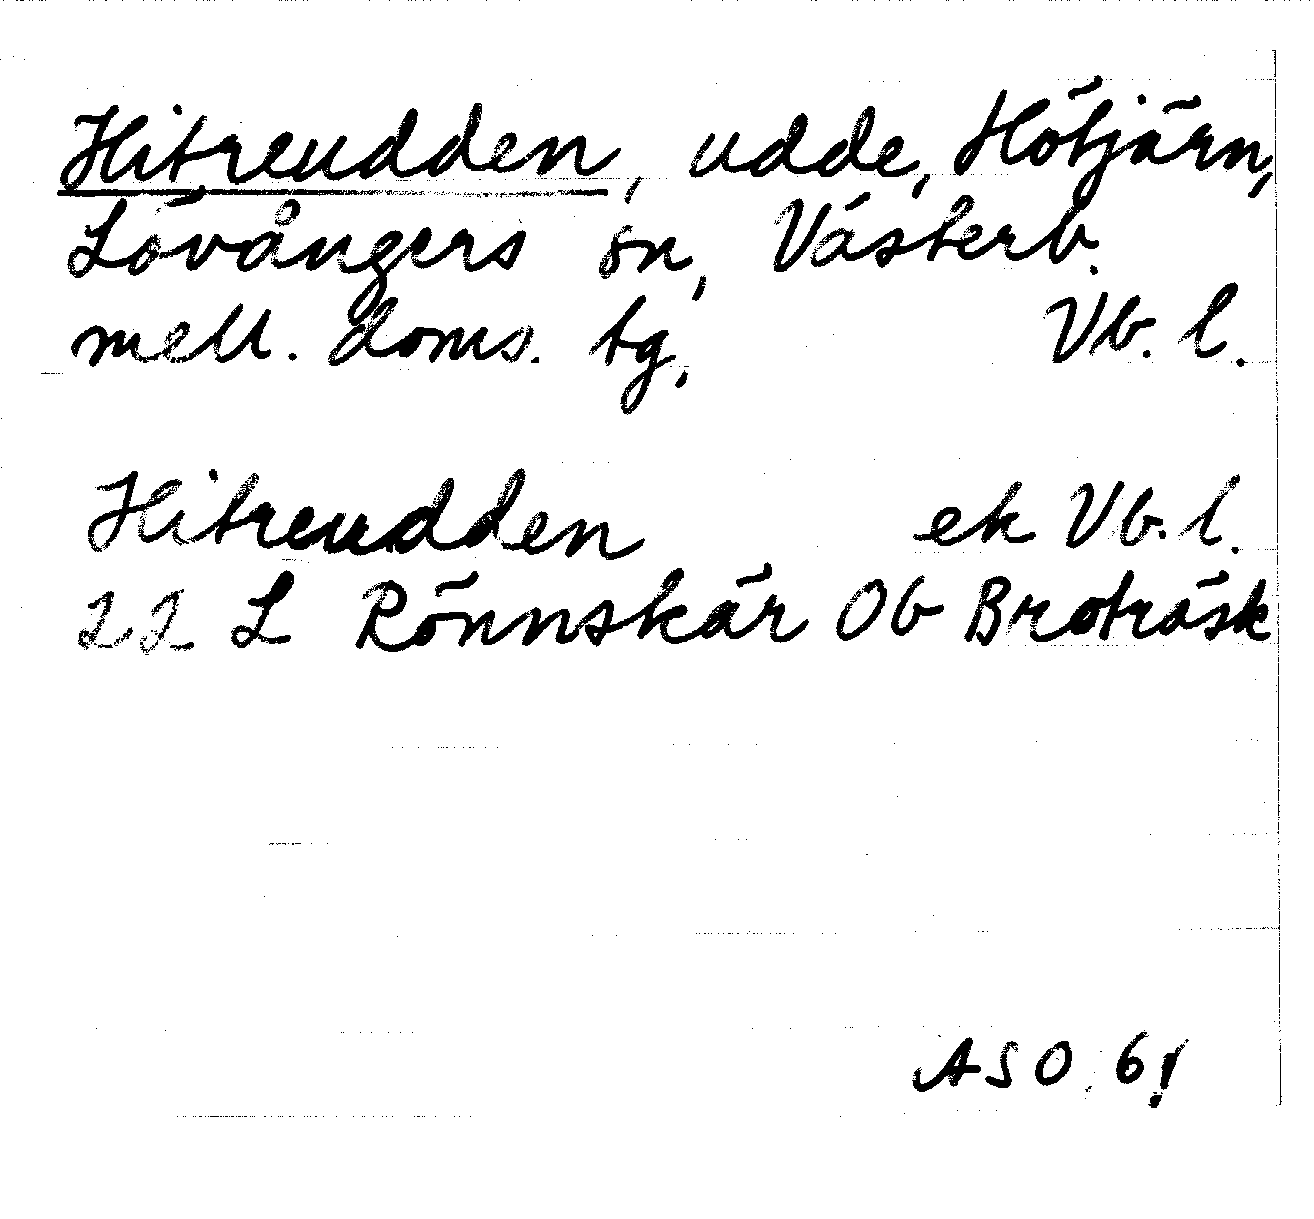 Hitreudden, udde, Hötjärn,
Lövångers sn, Västerb.
mell. doms. tg, Vb. l.
Hitreudden ek Vb. l.
22 L Rönnskär Ob Broträsk
ASO 6!